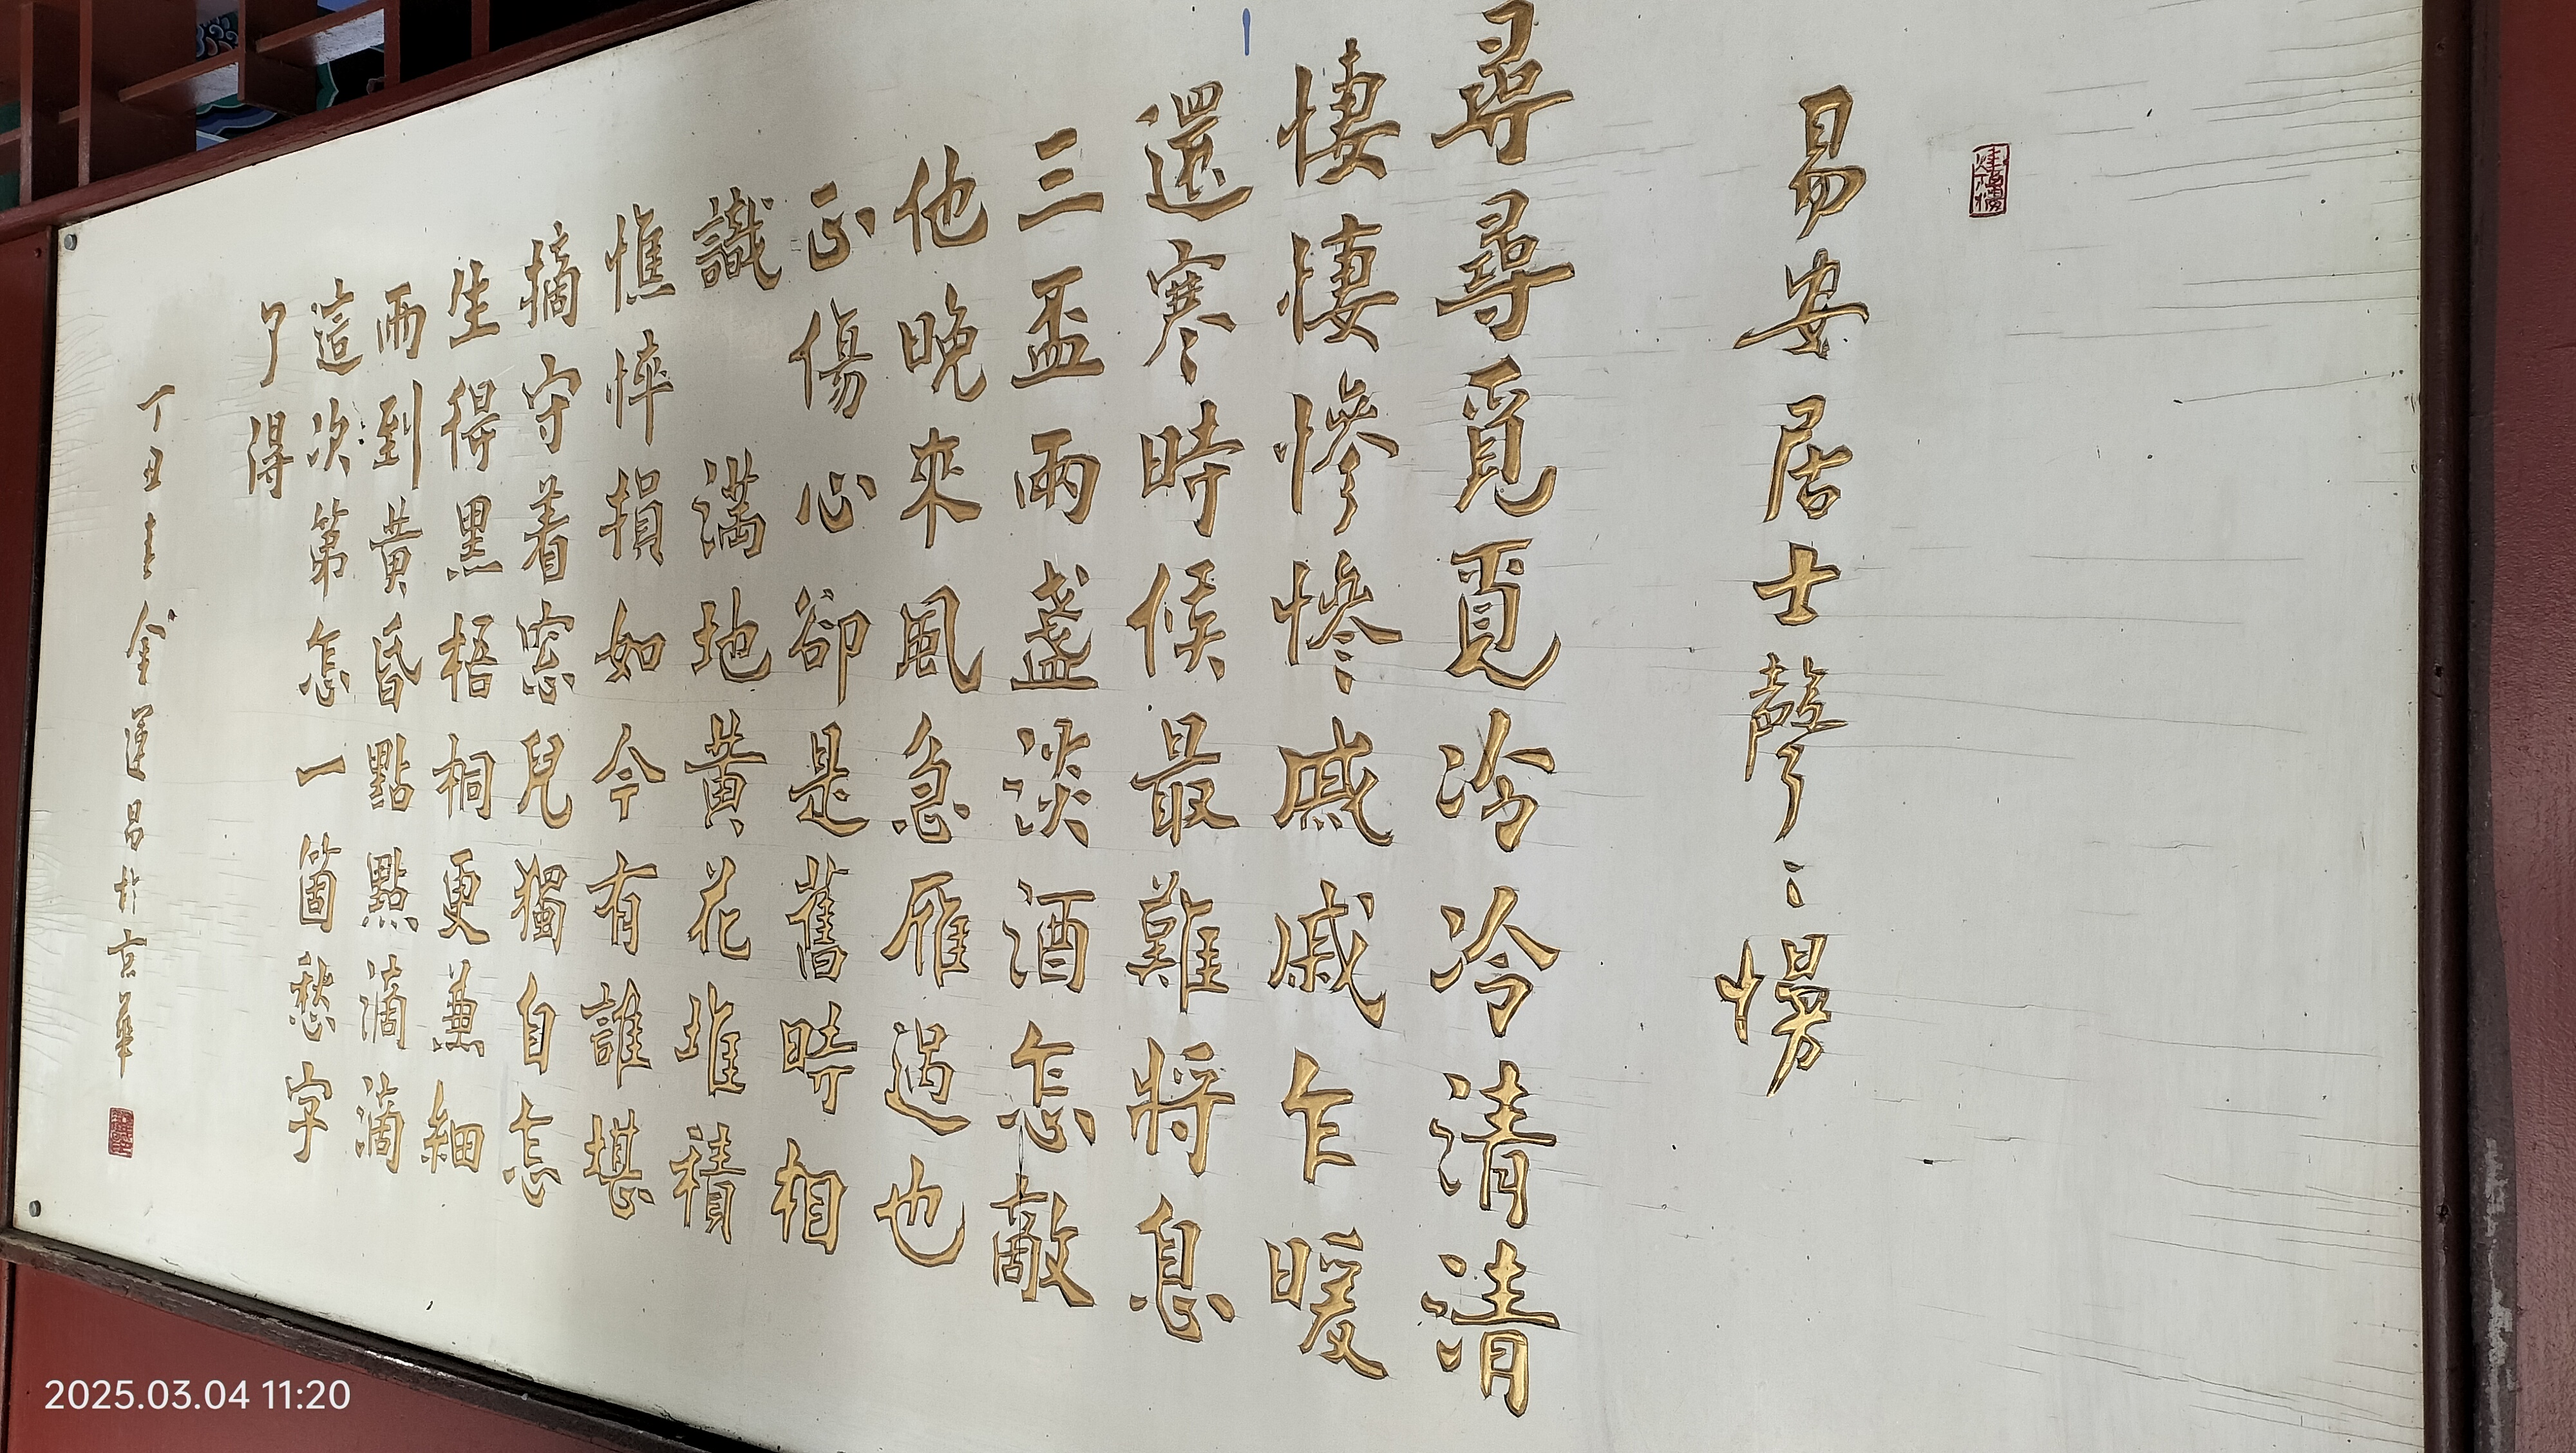 易安居士聲〻慢
尋尋覓覓冷冷清清
悽悽慘慘戚戚乍暖
還寒時候最難將息
三盃兩盞淡酒怎敵
他晚來風急雁過也
正傷心卻是舊時相
識 滿地黃花堆積
憔悴損如今有誰堪
摘守着窓兒獨自怎
生得黑梧桐更兼細
雨到黃昏點點滴滴
這次第怎一箇愁字
了得
丁丑 金運昌於京華
2025.03.04 11:20